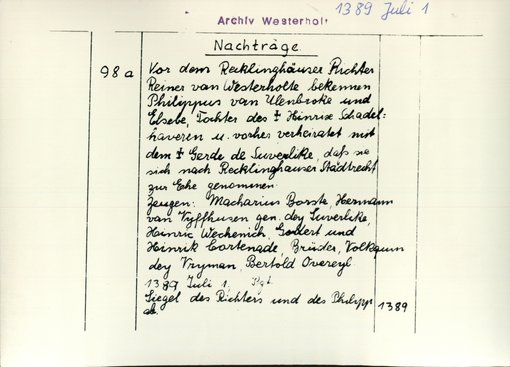 1389 Juli 1
Archiv Westerholt
Nachträge
98a
Vor dem Recklinghäuser Richter
Reiner van Westerholte bekennen
Philippus van Ulenbroke und
Elsebe, Tochter des ‡ Hinrix Schadel-
haveren u. vorher verheiratet mit
dem ‡ Gerde de Suverlike, daß sie
sich nach Recklinghauser Stadtrecht
zur Ehe genommen.
Zeugen: Macharius Borste, Hermann
van Vyffhusen gen. dey Suverlike,
Hinric Wechenich, Goddert und
Hinrik Cortenade, Brüder, Volkquin
dey Vryman, Bertold Overeyl
1389 Juli 1, Pgt.
Siegel des Richters und des Philipp
ab.
1389